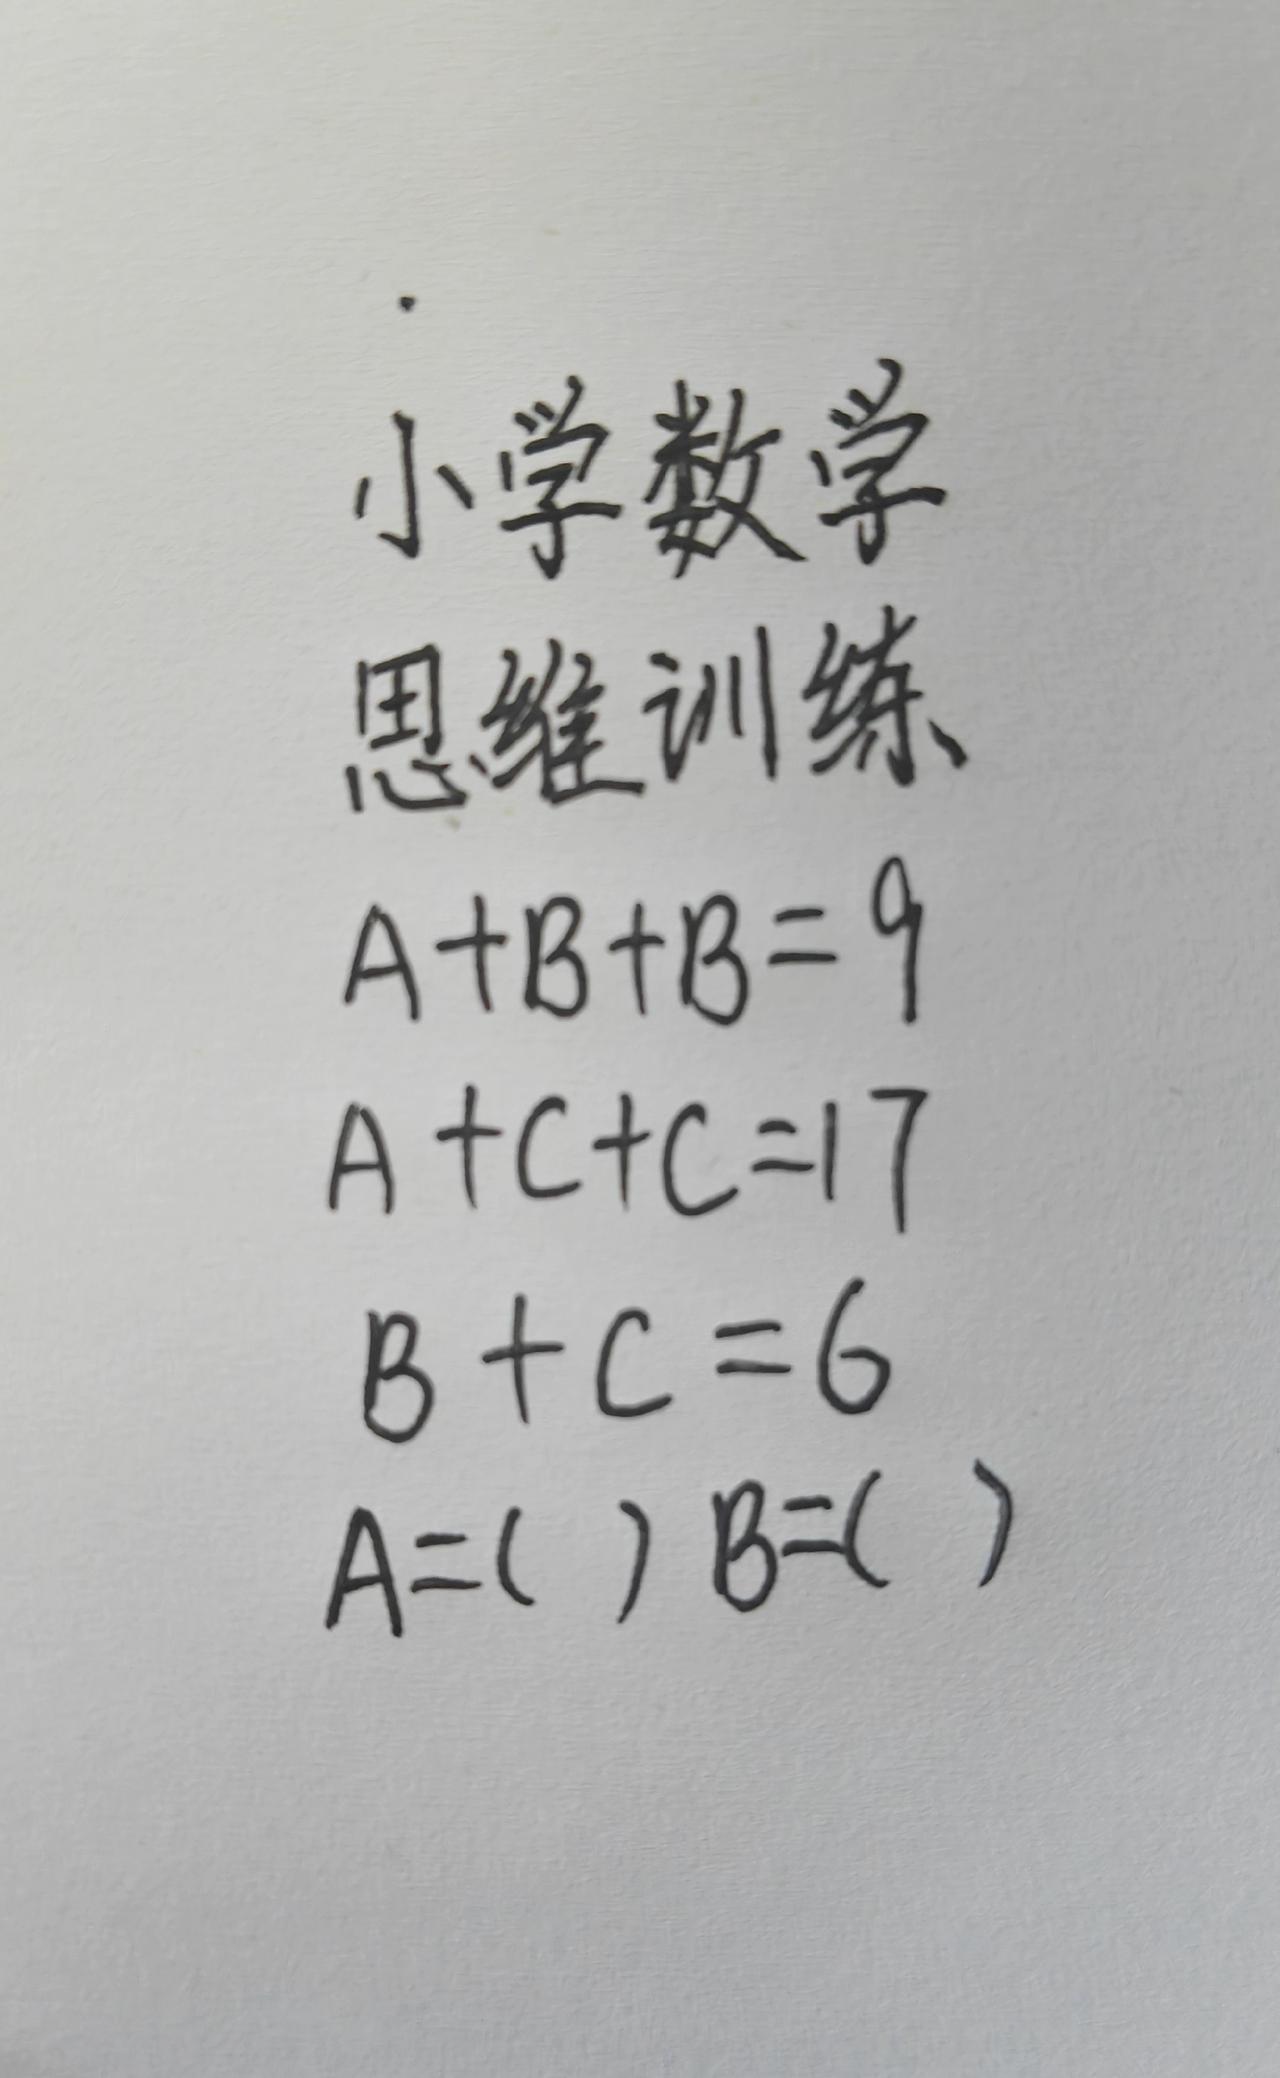 小学数学
思维训练
A+B+B=9
A+C+C=17
B+C=6
A=( ) B=( )